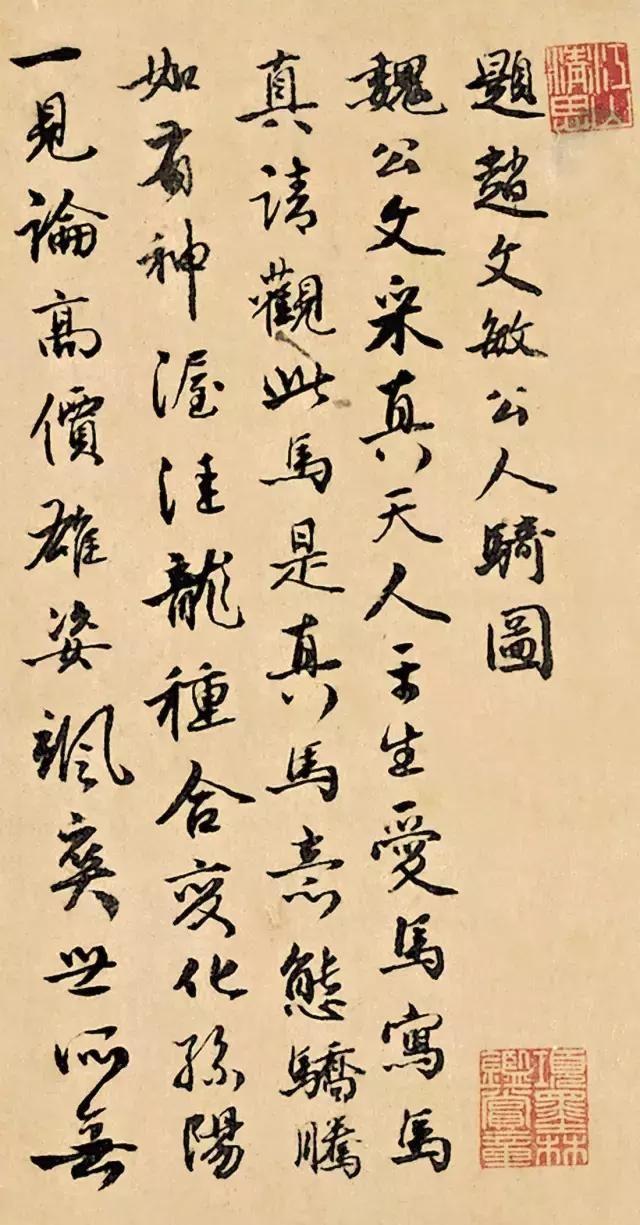 題趙文敏公人騎圖
魏公文采真天人平生愛馬寫馬
真請觀此馬是真馬意態驕騰
如有神渥洼龍種合變化孫陽
一見論高價雄姿颯爽世所無
江山
清思
項墨林
鑑賞章